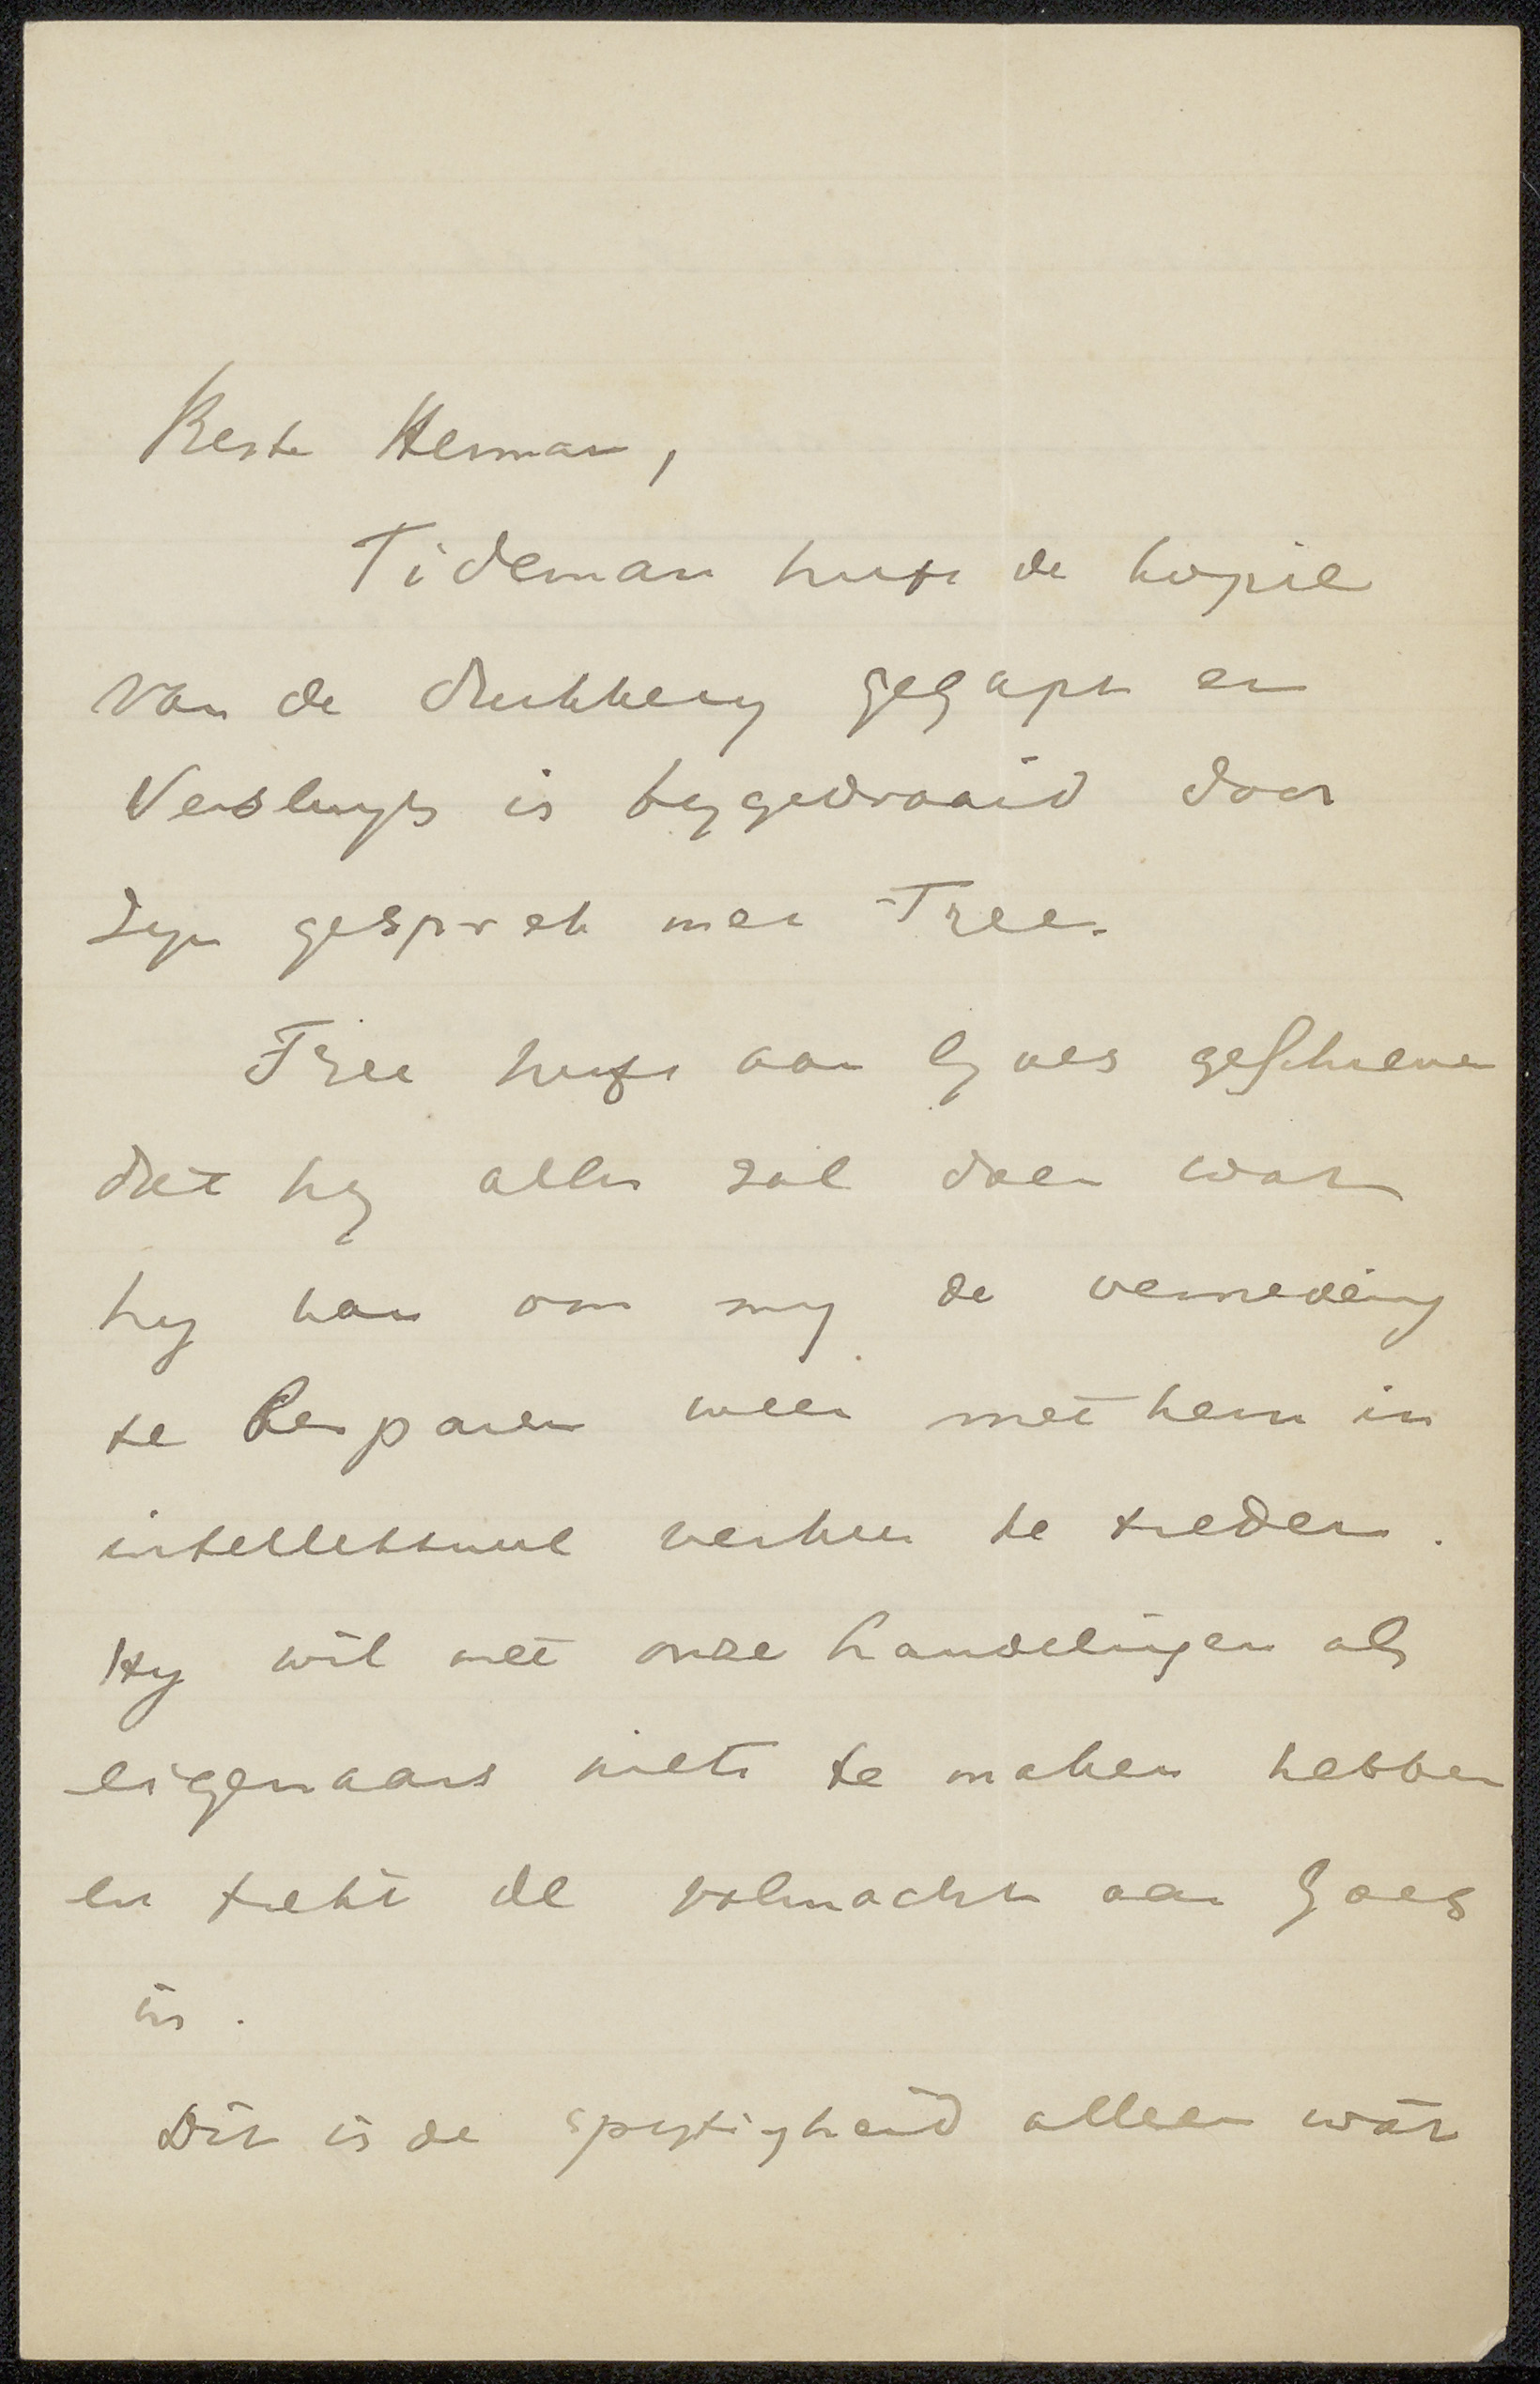 Beste Herman,
Tideman heeft de kopie
van de drukkery gegapt en
Versluys is bygedraaid door
zyn gesprek met Free.
Free heeft aan Goes geschreven
dat hy alles zal doen wat
hy kan om my de vernedering
te besparen weer met hem in
intellektueel verkeer te treden.
Hy wil met onze handelingen als
eigenaars niets te maken hebben
en trekt de volmacht aan Goes
in.
Dit is de spytigheid alleen wat